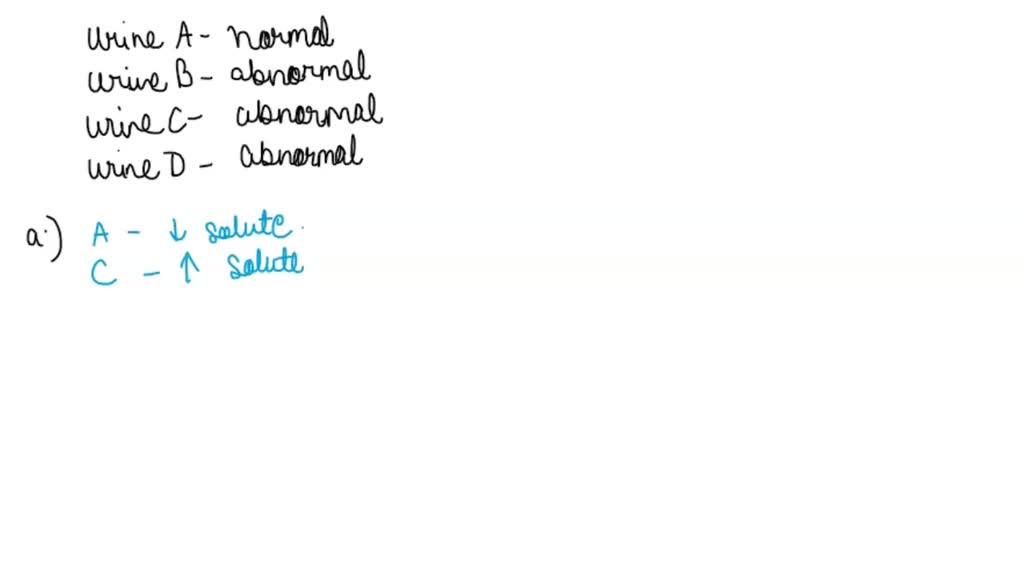 urine A - normal
urine B - abnormal
urine C - abnormal
urine D - abnormal
a.) A - ↓ solute.
C - ↑ solute